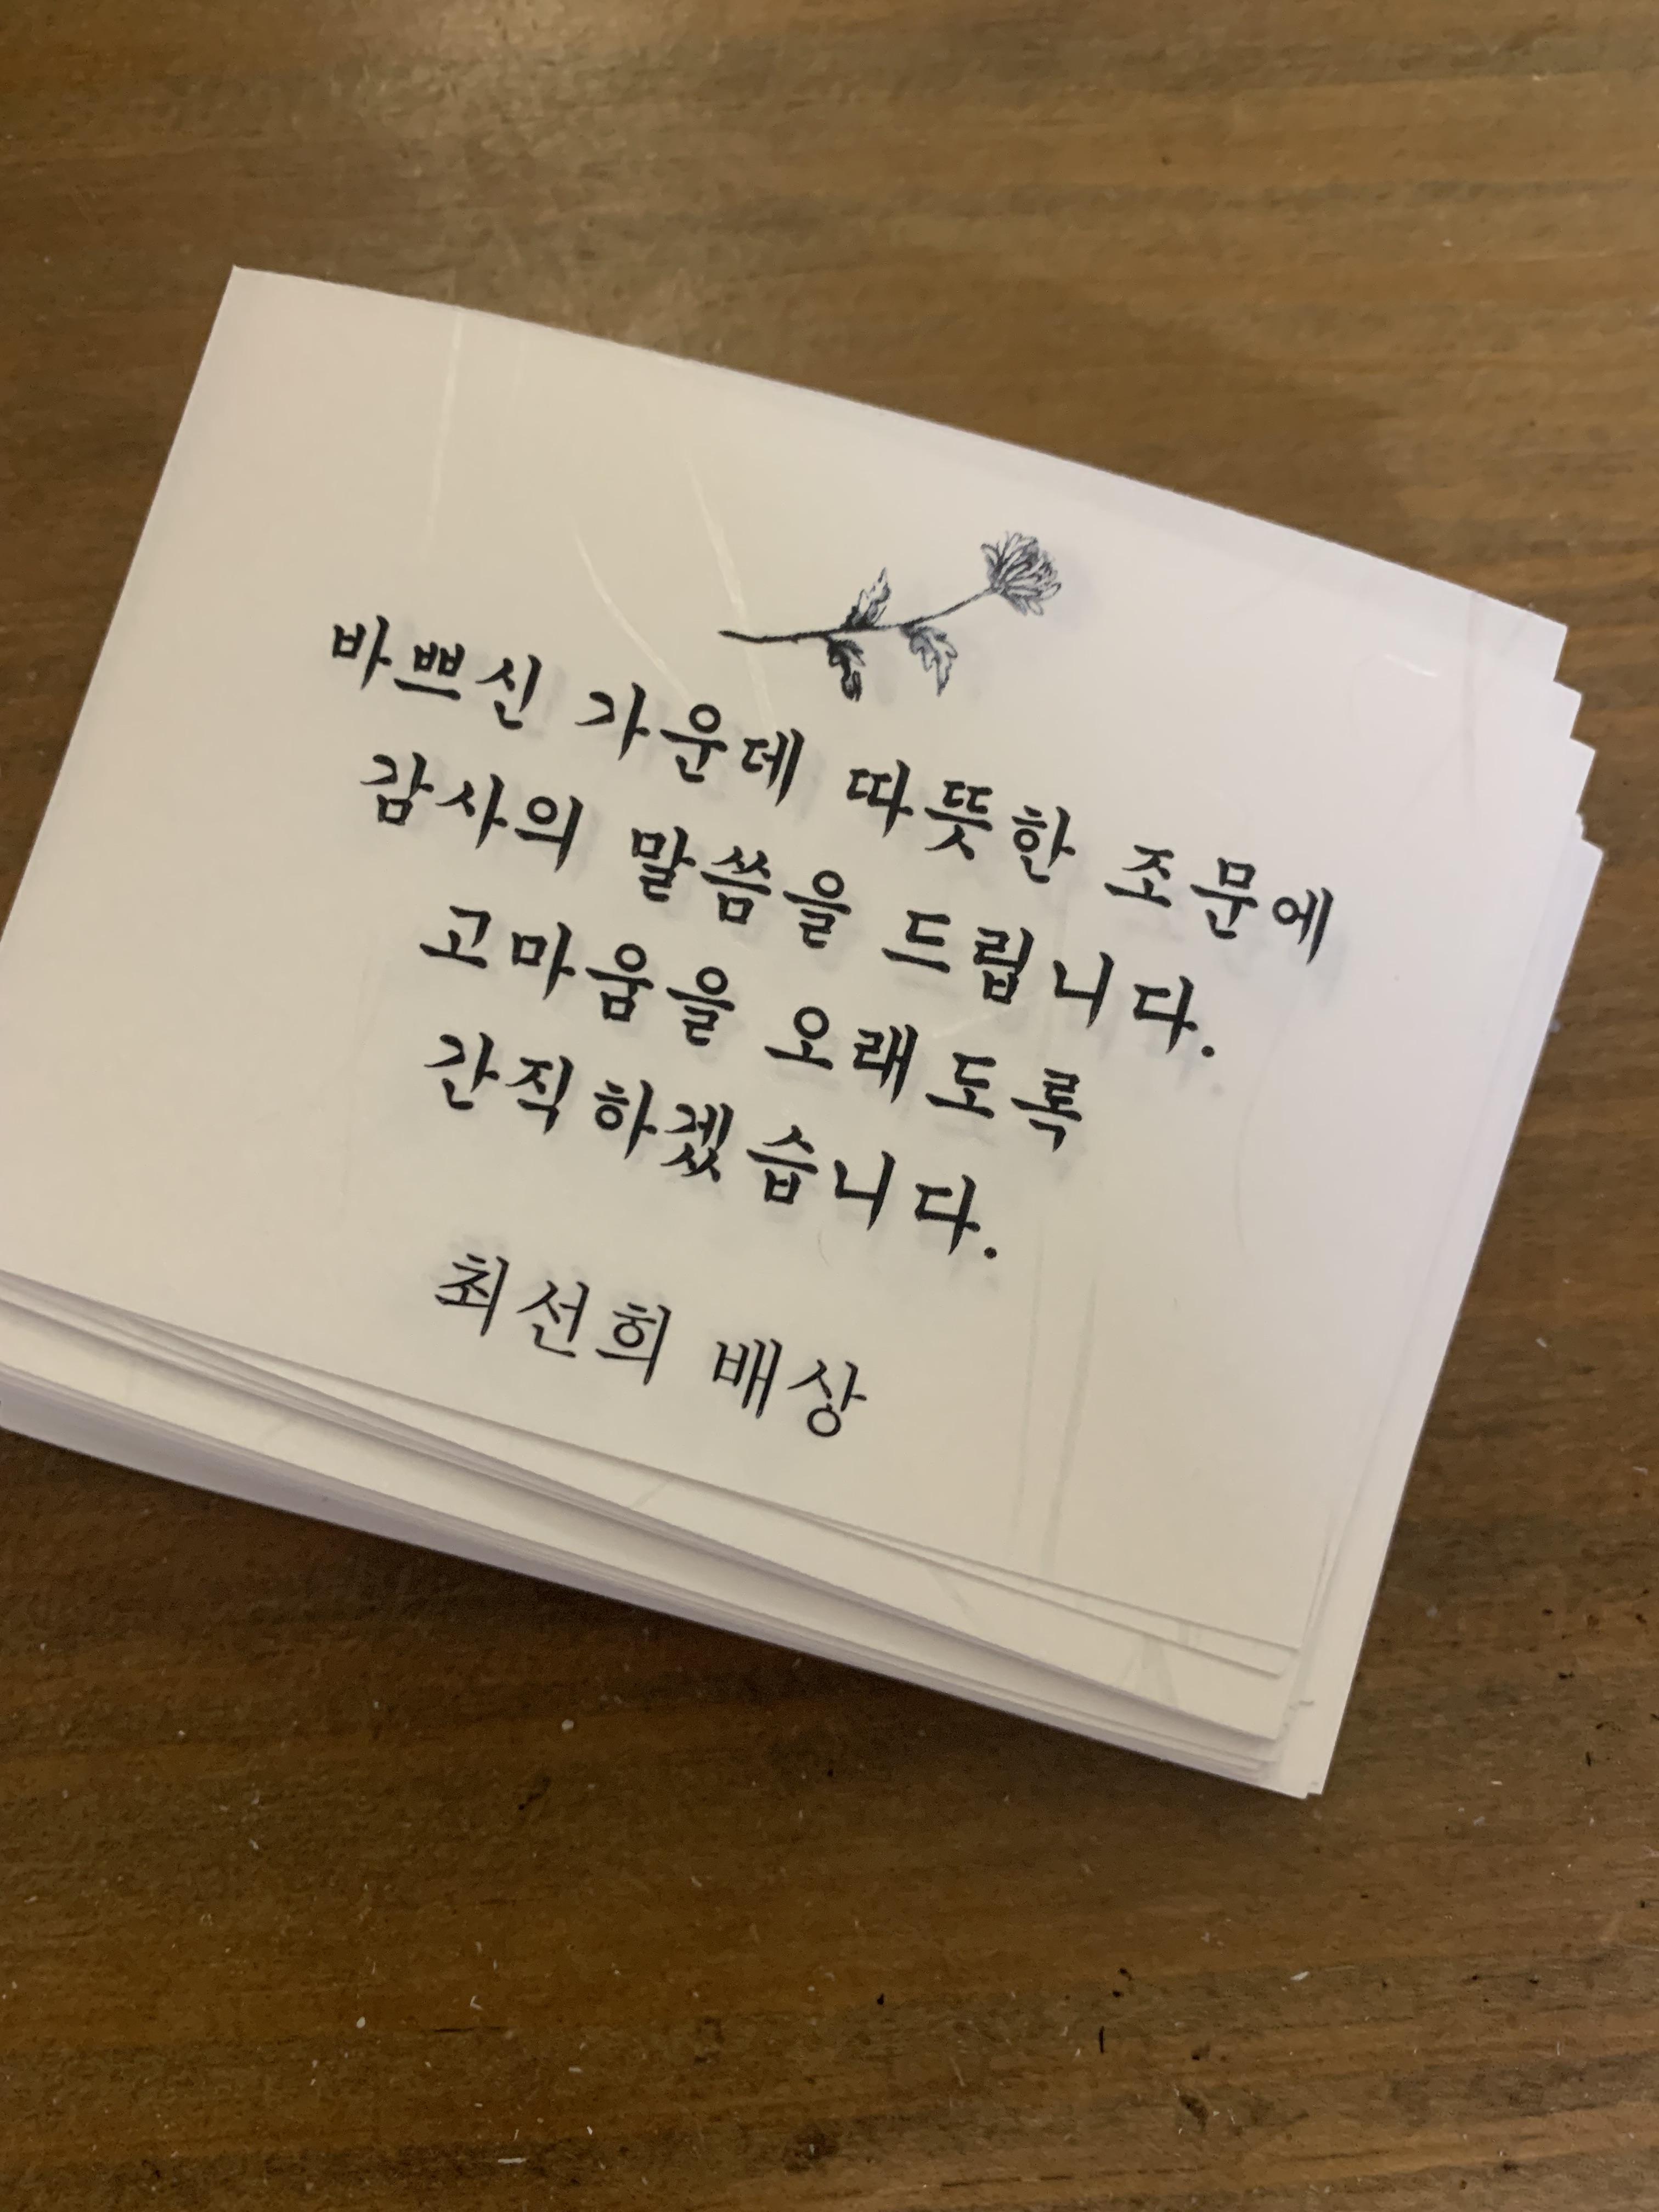 바쁘신 가운데 따뜻한 조문에
감사의 말씀을 드립니다.
고마움을 오래도록
간직하겠습니다.
최선희 배상